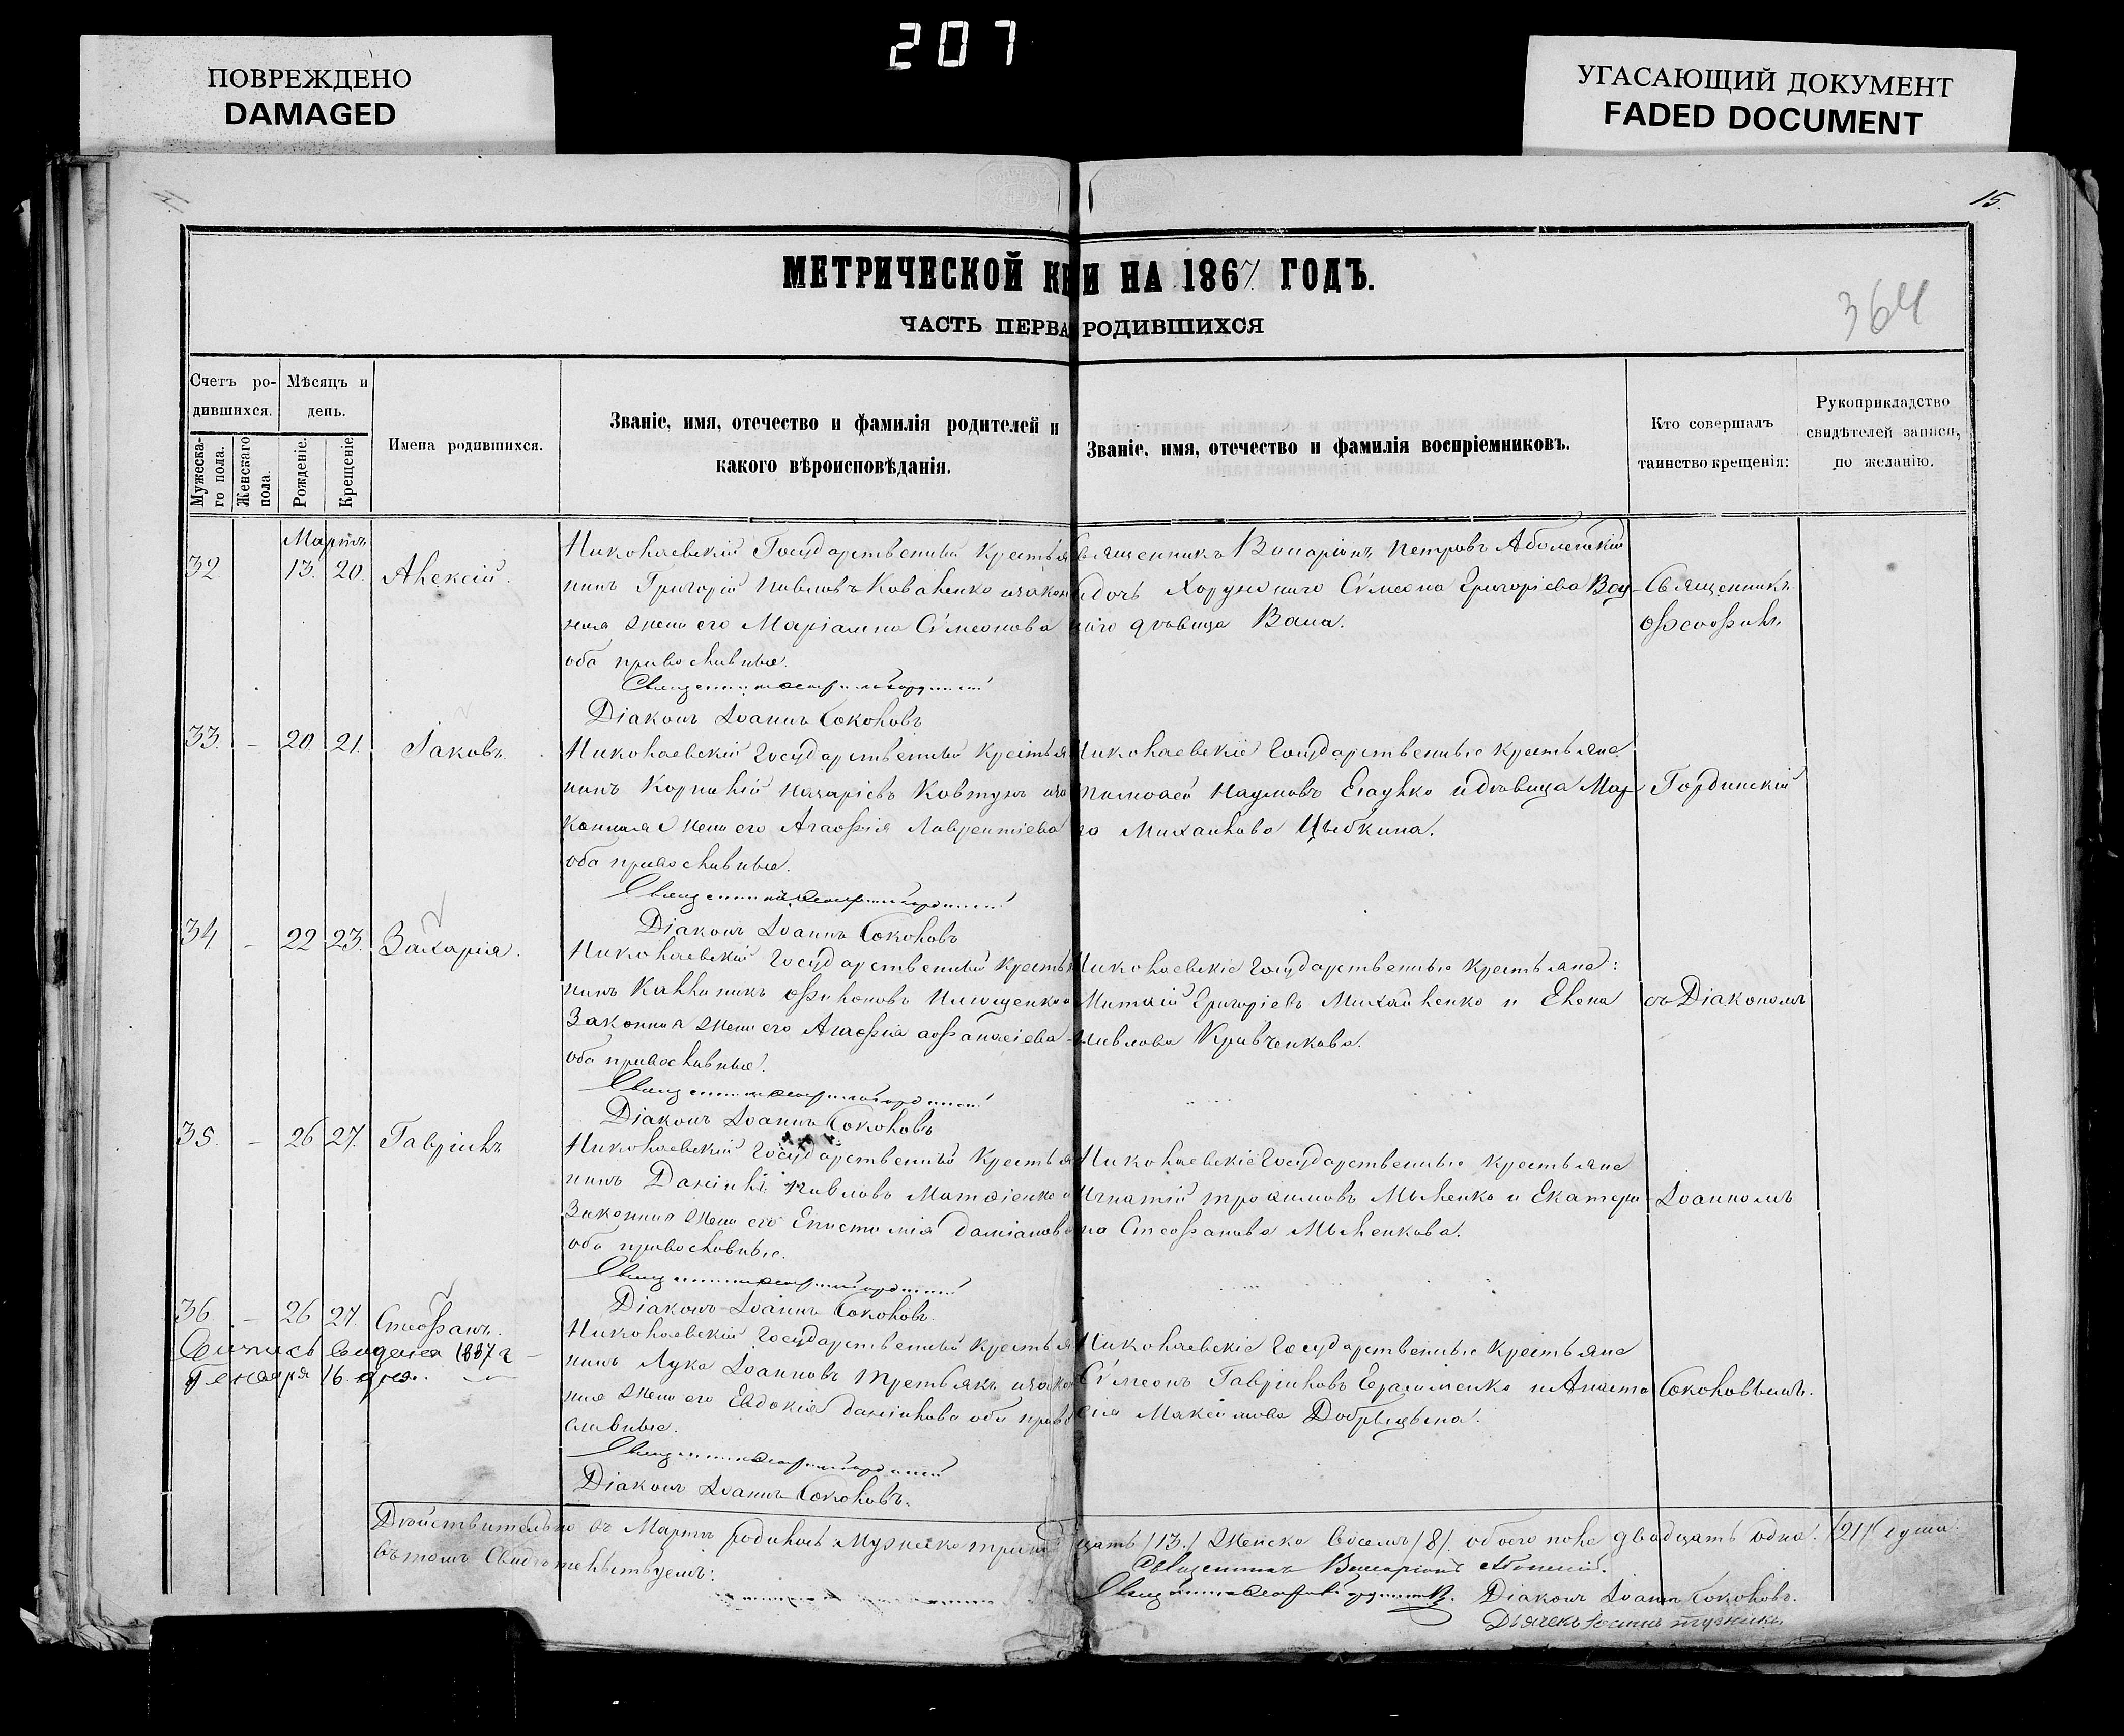 207
ПОВРЕЖДЕНО
DAMAGED
УГАСАЮЩИЙ ДОКУМЕНТ
FADED DOCUMENT
15.
МЕТРИЧЕСКОЙ КН И НА 1867 ГОДЪ.
364
ЧАСТЬ ПЕРВА РОДИВШИХСЯ
Счетъ ро-
дившихся.
Мужеска-
го пола.
Женскаго
пола.
Мѣсяцъ и
день.
Рожденіе.
Крещеніе.
Имена родившихся.
Званіе, имя, отечество и фамилія родителей и
какого вѣроисповѣданія.
Званіе, имя, отечество и фамилія воспріемниковъ.
Кто совершалъ
таинство крещенія:
Рукоприкладство
свидѣтелей записи,
по желанію.
Мартъ
32 13. 20. Алексій.
Николаевскій Государственный Крестья
нинъ Григорій Павловъ Коваленко и закон
ная жена его Маріамна Сѵмеонова
оба православные.
Діаконъ Іоаннъ Соколовъ
Священникъ Виссаріонъ Петровъ
и дочь Хорунжаго Сѵмеона Григоріева
дѣвица
Священникъ
Ѳеофилъ
33. – 20. 21. Іаковъ.
Николаевскій Государственный Крестья
нинъ Корнилій Назаріевъ Ковтунъ и за
конная жена его Агафія Лаврентіева
оба православные.
Діаконъ Іоаннъ Соколовъ
Николаевскіе Государственные Крестьяне
Тимофей Наумовъ и дѣвица Мар
ѳа Михаилова Цыбкина.
Гординскій
34. – 22 23. Захарія.
Николаевскій Государственный Крестья
нинъ Каллиникъ Филоновъ
Законная жена его Агафія Афанасіева
оба православные.
Діаконъ Іоаннъ Соколовъ
Николаевскіе Государственные Крестьяне:
Григоріевъ Михайленко и Елена
Павлова Кравченкова.
съ Діакономъ
35. – 26 27. Гавріилъ
Николаевскій Государственный Крестья
нинъ Даніилъ Павловъ Матвіенко и
Законная жена его Епистимія Даміанова
оба православные.
Діаконъ Іоаннъ Соколовъ.
Николаевскіе Государственные Крестьяне
Игнатій Трофимовъ Мыленко и Екатери
на Стефанова Мыленкова.
Іоанномъ
36 – 26 27. Стефанъ.
выдана 1887 г
Января 16 дня.
Николаевскій Государственный Крестья
нинъ Лука Іоанновъ Третьякъ и закон
ная жена его Евдокія Даніилова оба право
славные.
Діаконъ Іоаннъ Соколовъ.
Николаевскіе Государственные Крестьяне
Сѵмеонъ Гавріиловъ Ерашенко и Анаста
сія Максимова Добрицына.
Соколовымъ.
Дѣйствительно въ Мартѣ родилось Мужеска тринад цать /13./ Женска восемь /8/. обоего пола двадцать одна. /21/ душа.
въ томъ Свидѣтельствуемъ:
Священникъ Виссаріонъ
Діаконъ Іоаннъ Соколовъ.
Дьячекъ